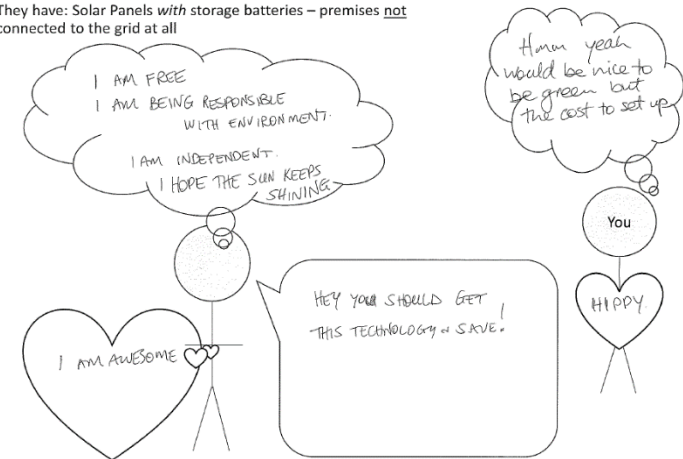 They have: Solar Panels with storage batteries – premises not
connected to the grid at all
I AM FREE
I AM BEING RESPONSIBLE
WITH ENVIRONMENT.
I AM INDEPENDENT.
I HOPE THE SUN KEEPS
SHINING
Hmm yeah
would be nice to
be green but
the cost to set up
You
HIPPY
HEY YOU SHOULD GET
THIS TECHNOLOGY & SAVE!
I AM AWESOME